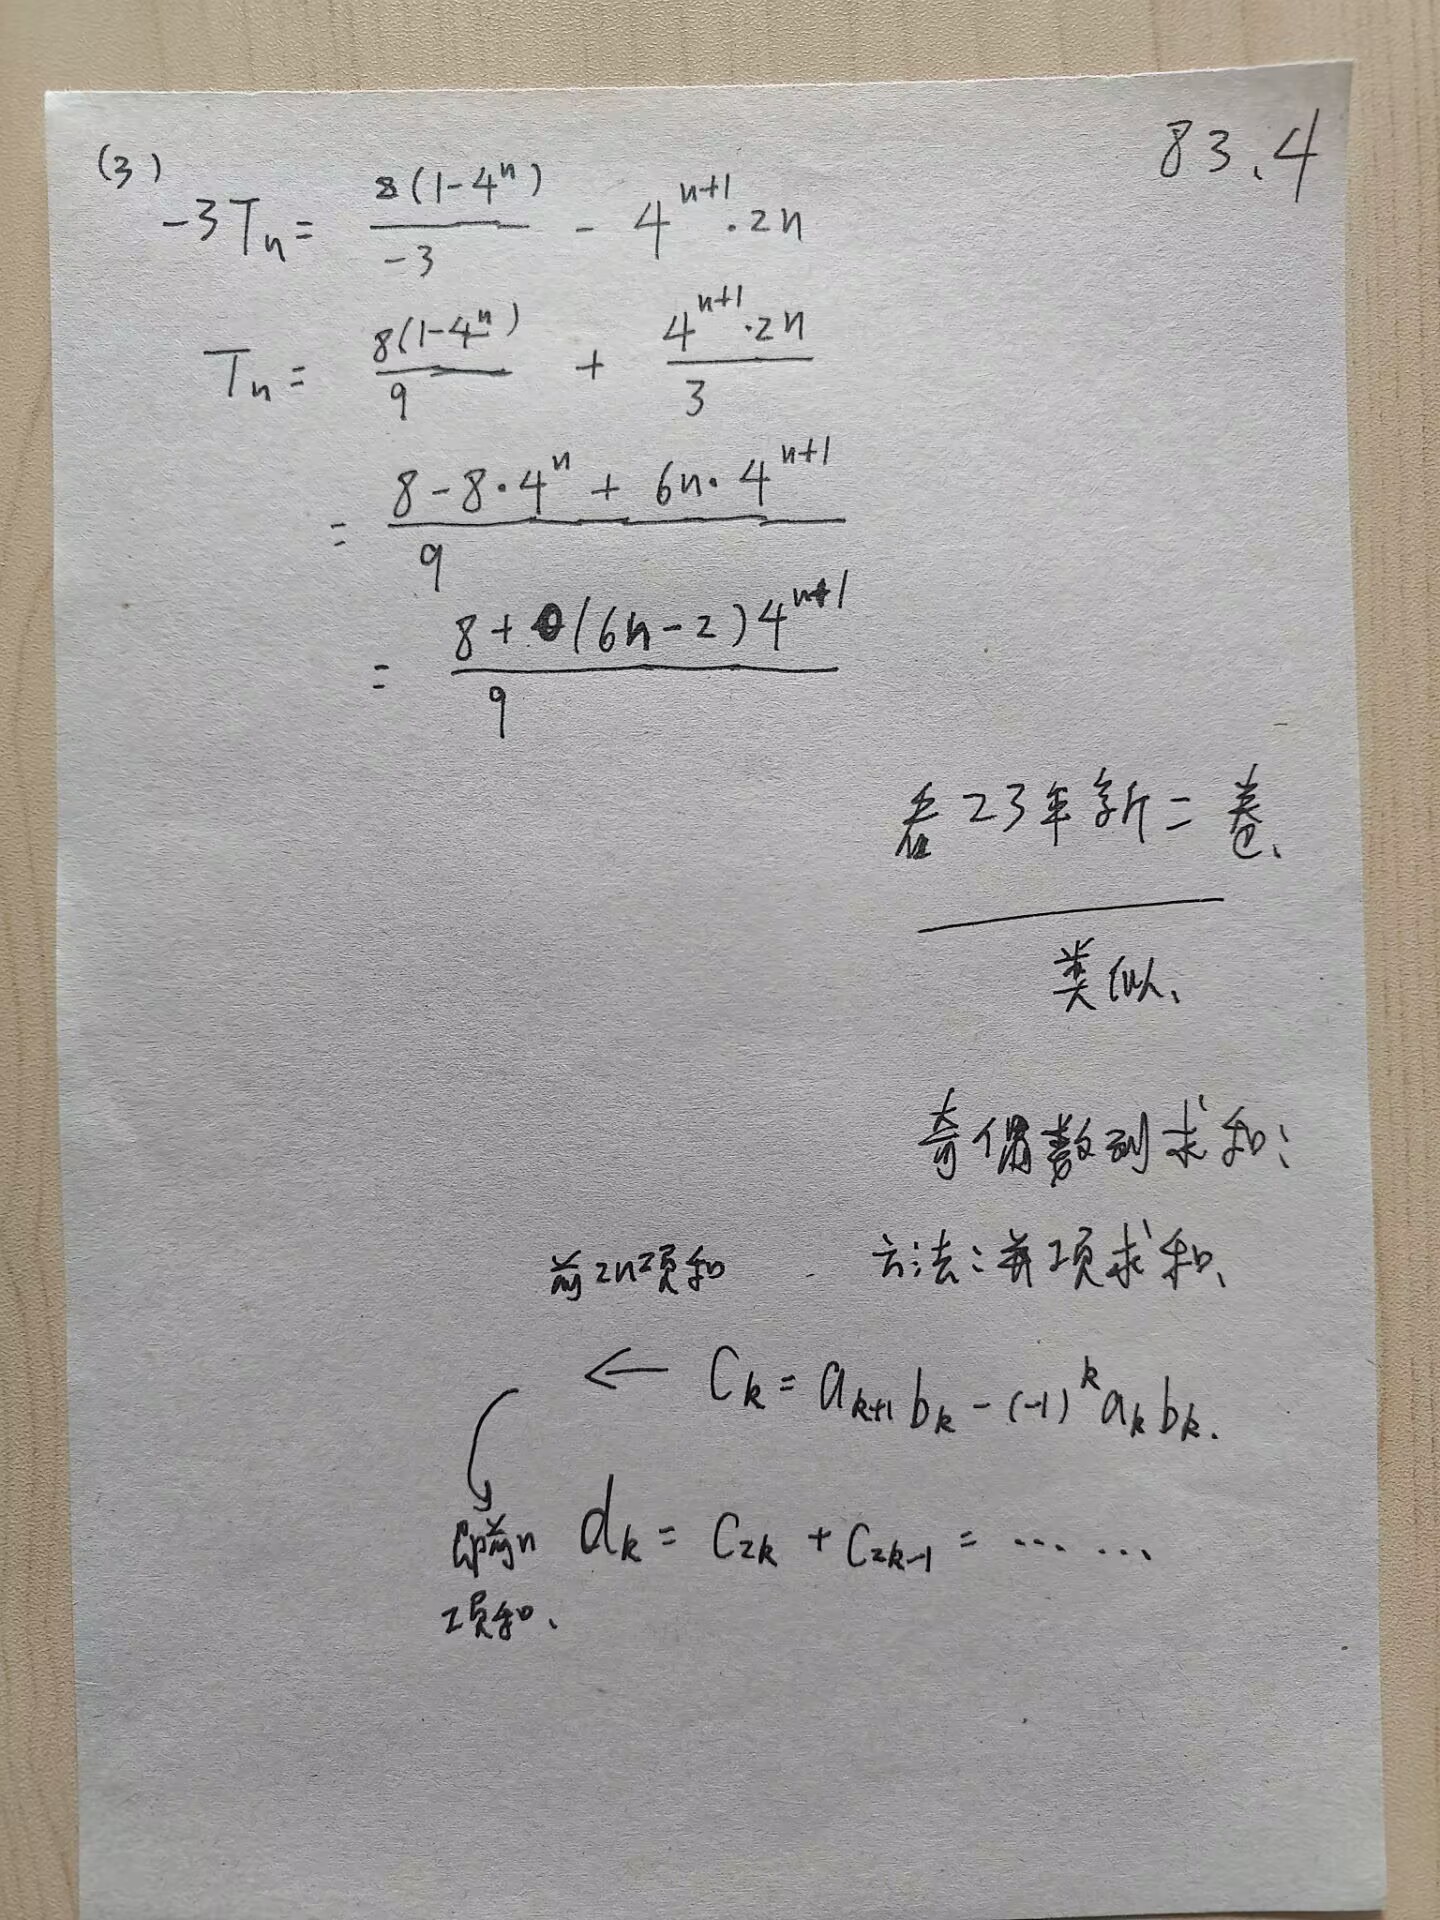 83.4
(3)
-3Tn = 8(1-4^n)/-3 - 4^{n+1}·2n
Tn = 8(1-4^n)/9 + 4^{n+1}·2n/3
= 8-8·4^n+6n·4^{n+1}/9
= 8+(6n-2)4^{n+1}/9
看23年新二卷、
类似、
奇偶数列求和:
前2n项和 方法:并项求和、
← C_k = a_{k+1}b_k-(-1)^k a_k b_k.
即前n d_k = C_{2k}+C_{2k-1} = ... ...
项和、